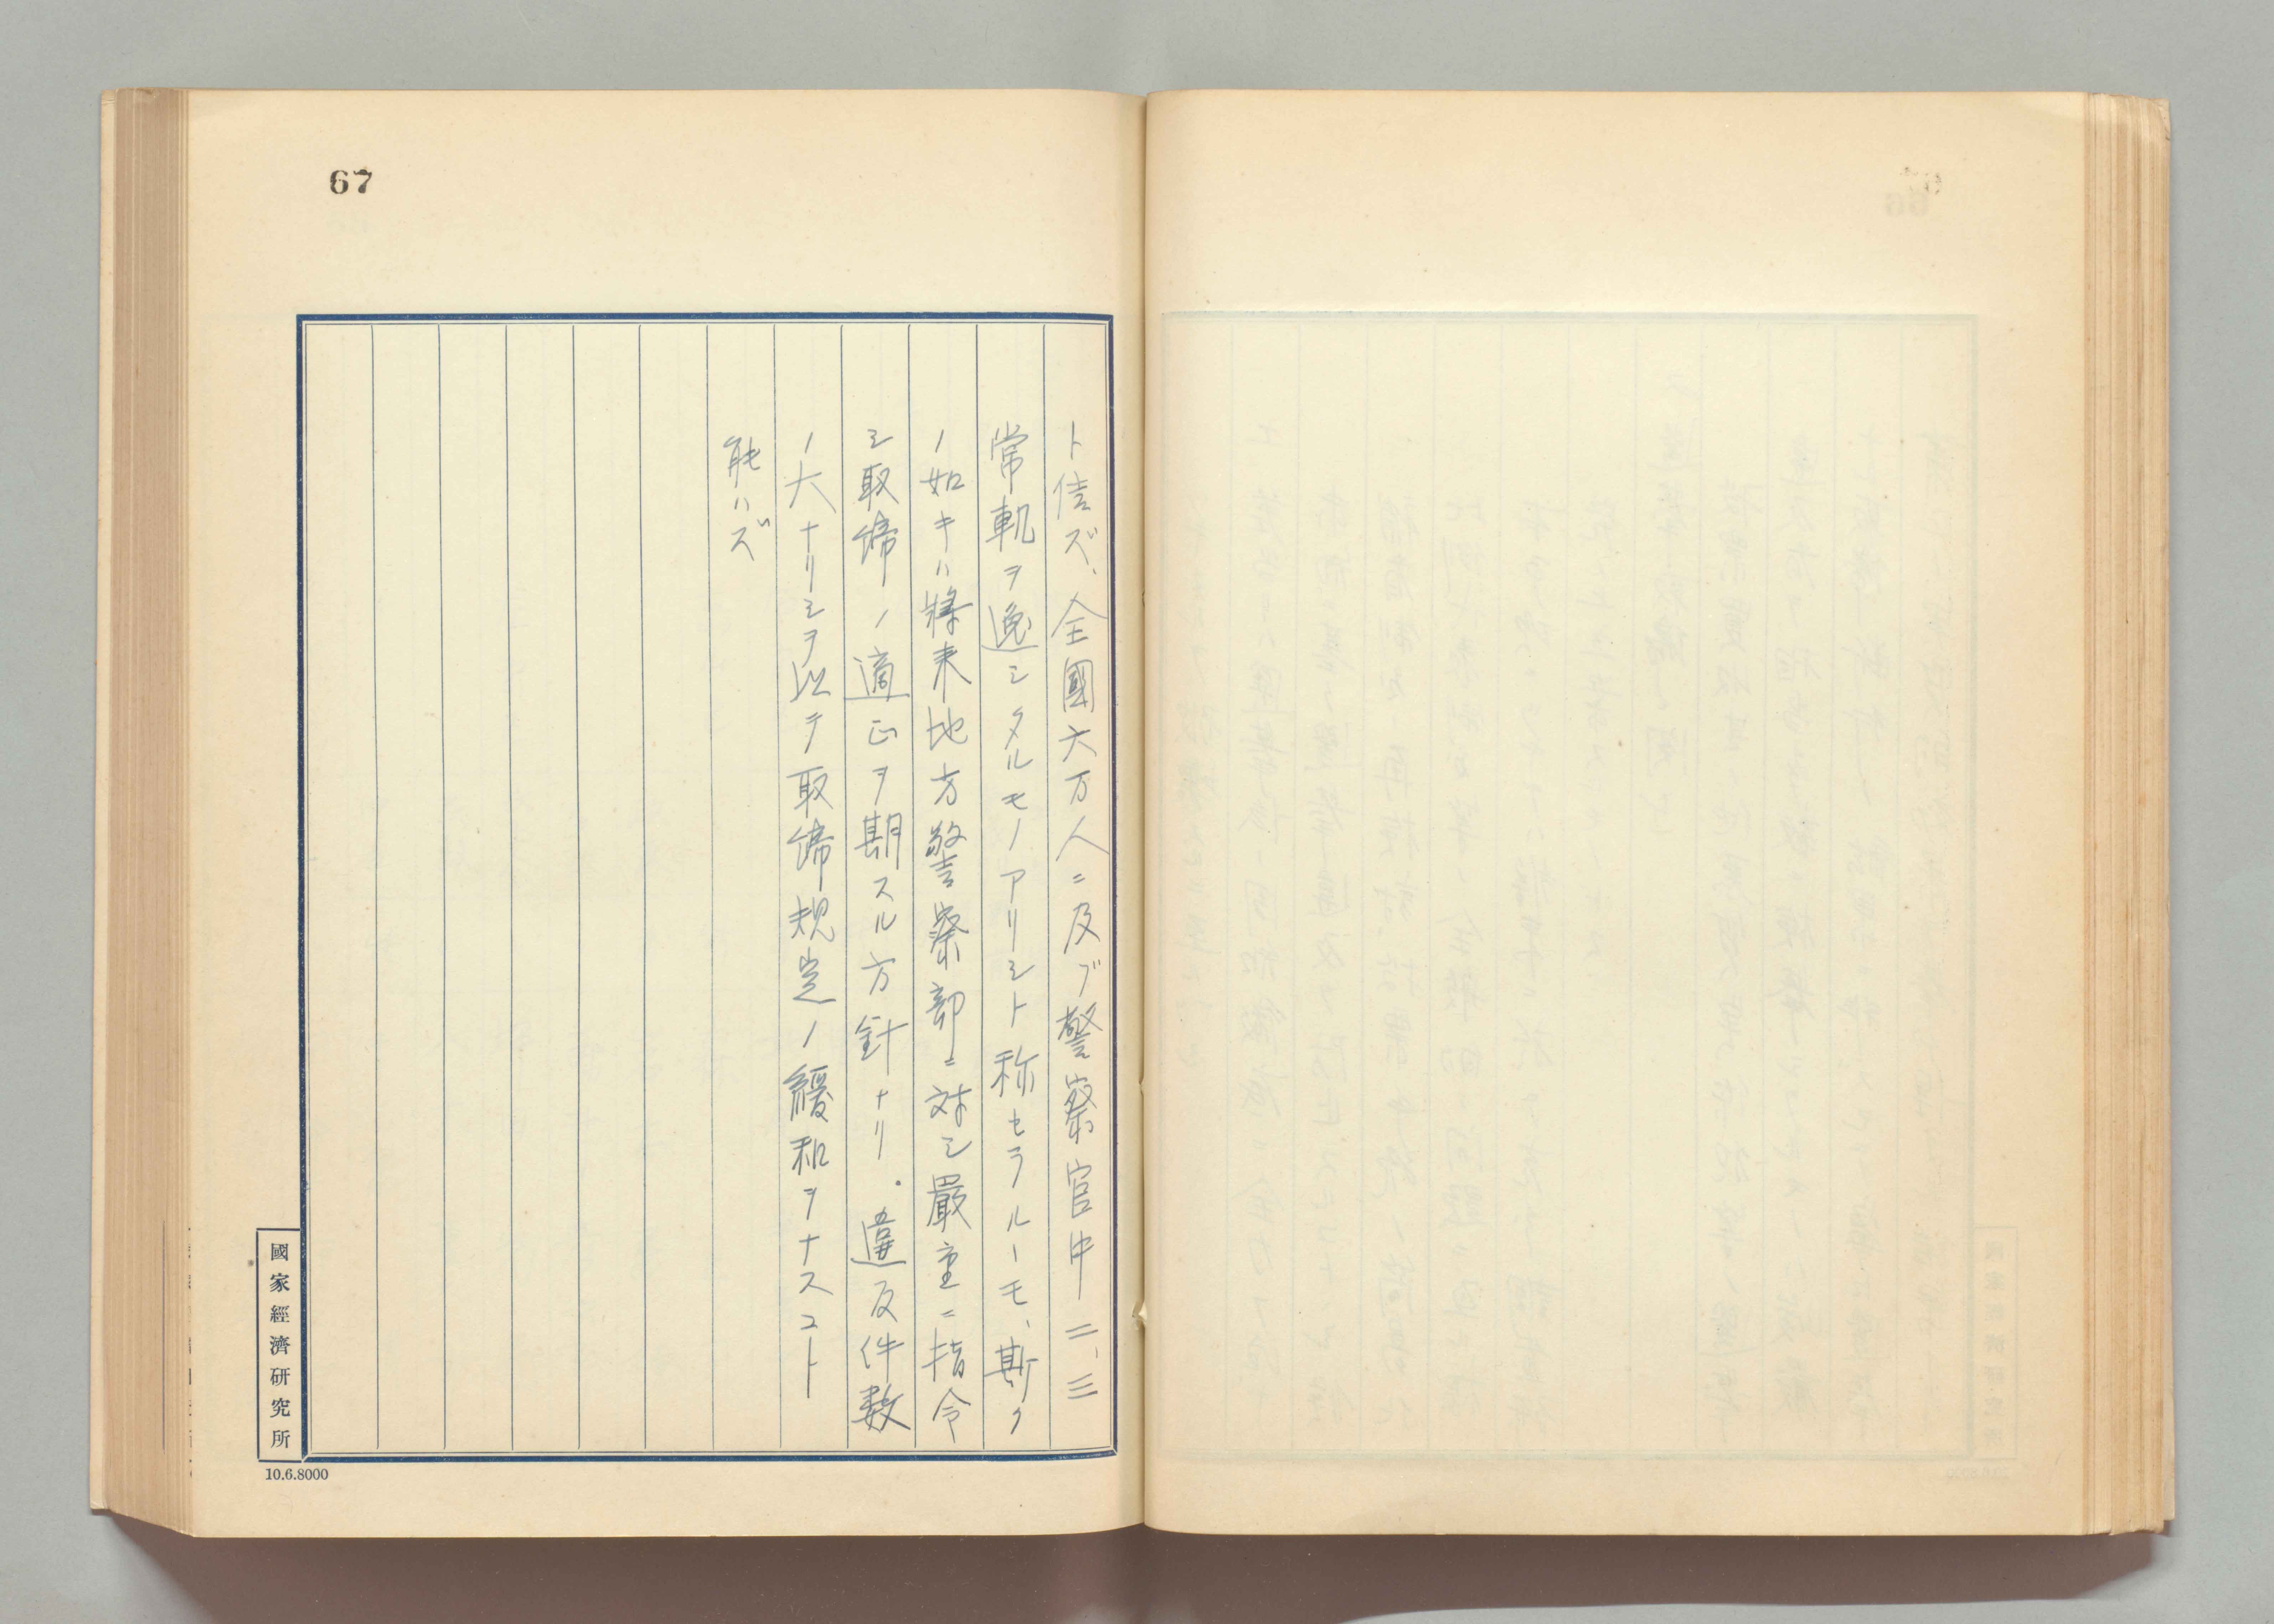 67
ト信ズ、全國六万人ニ及ブ警察官中二、三
常軌ヲ逸シタルモノアリシト称セラルヽモ、斯ク
ノ如キハ將来地方警察部ニ対シ嚴重ニ指令
シ取締ノ適正ヲ期スル方針ナリ。違反件数
ノ大ナリシヲ以テ取締規定ノ緩和ヲナスコト
能ハズ
國家經濟研究所
10.6.8000